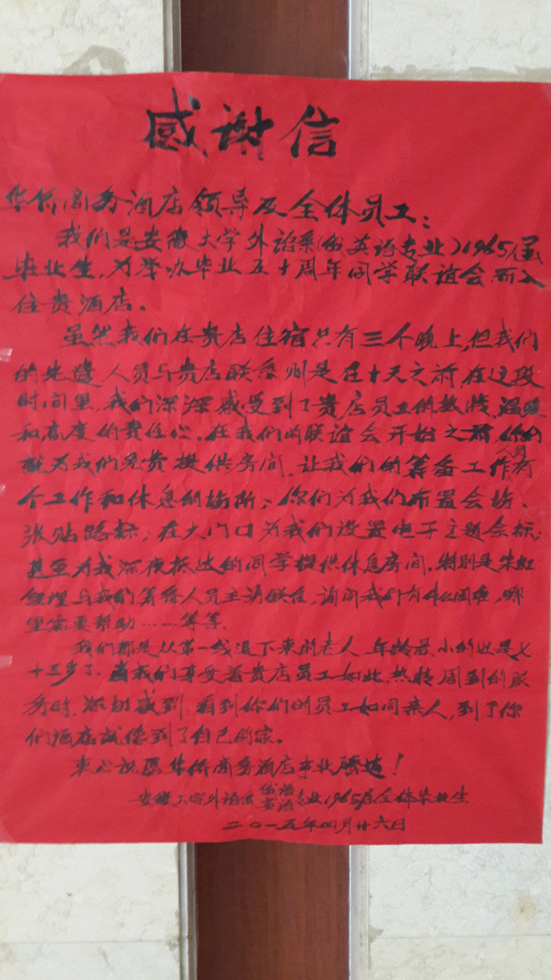 感谢信
华侨商务酒店领导及全体员工：
我们是安徽大学外语系(俄英语专业)1965届
毕业生，为举办毕业五十周年同学联谊会而入
住贵酒店。
虽然我们在贵店住宿只有三个晚上，但我们
的先遣人员与贵店联系则是在十天之前，在这段
时间里，我们深深感受到了贵店员工的热情、温暖
和高度的责任心。在我们的联谊会开始之前，你们
就为我们免费提供房间，让我们的筹备工作人员有
个工作和休息的场所；你们为我们布置会场、
张贴路标，在大门口为我们设置电子主题会标；
甚至为我深夜抵达的同学提供休息房间。特别是朱红
经理与我们筹备人员主动联系，询问我们有什么困难，哪
里需要帮助……等等。
我们都是从第一线退下来的老人，年龄最小的也是七
十三岁了。当我们享受着贵店员工如此热情周到的服
务时，深切感到，看到你们的员工如同亲人，到了你
们酒店就像到了自己的家。
衷心祝愿华侨商务酒店事业腾达！
安徽大学外语系俄语英语专业1965届全体毕业生
二〇一五年四月廿六日